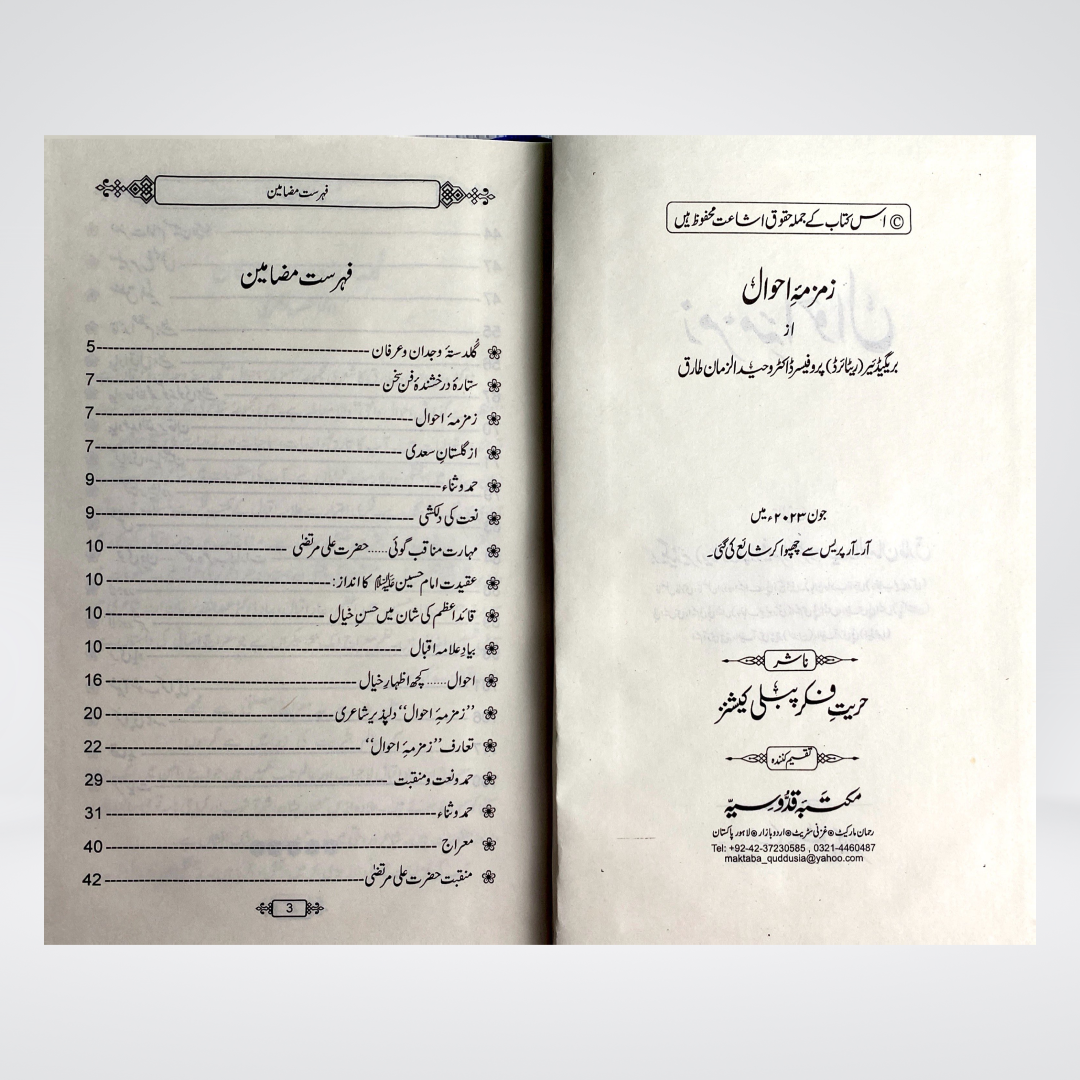 © اس کتاب کے جملہ حقوق اشاعت محفوظ ہیں
زمزمۂ احوال
از
بریگیڈئیر (ریٹائرڈ) پروفیسر ڈاکٹر وحید الزمان طارق
جون ۲۰۲۳ء میں
آر۔آر پریس سے چھپوا کر شائع کی گئی۔
ناشر
حریتِ فکر پبلی کیشنز
تقسیم کنندہ
مکتبہ قدّوسیہ
رحمان مارکیٹ ● غزنی سٹریٹ ● اردو بازار ● لاہور پاکستان
Tel: +92-42-37230585 , 0321-4460487
maktaba_quddusia@yahoo.com
فہرست مضامین
فہرست مضامین
گلدستۂ وجدان و عرفان 5
ستارۂ درخشندۂ فن سخن 7
زمزمۂ احوال 7
از گلستانِ سعدی 7
حمد و ثناء 9
نعت کی دلکشی 9
مہارت مناقب گوئی...... حضرت علی مرتضیٰ 10
عقیدت امام حسین علیہ السلام کا انداز: 10
قائد اعظم کی شان میں حسنِ خیال 10
بیادِ علامہ اقبال 10
احوال...... کچھ اظہارِ خیال 16
’’زمزمۂ احوال‘‘ دلپذیر شاعری 20
تعارف ’’زمزمۂ احوال‘‘ 22
حمد و نعت و منقبت 29
حمد و ثناء 31
معراج 40
منقبت حضرت علی مرتضیٰ 42
3